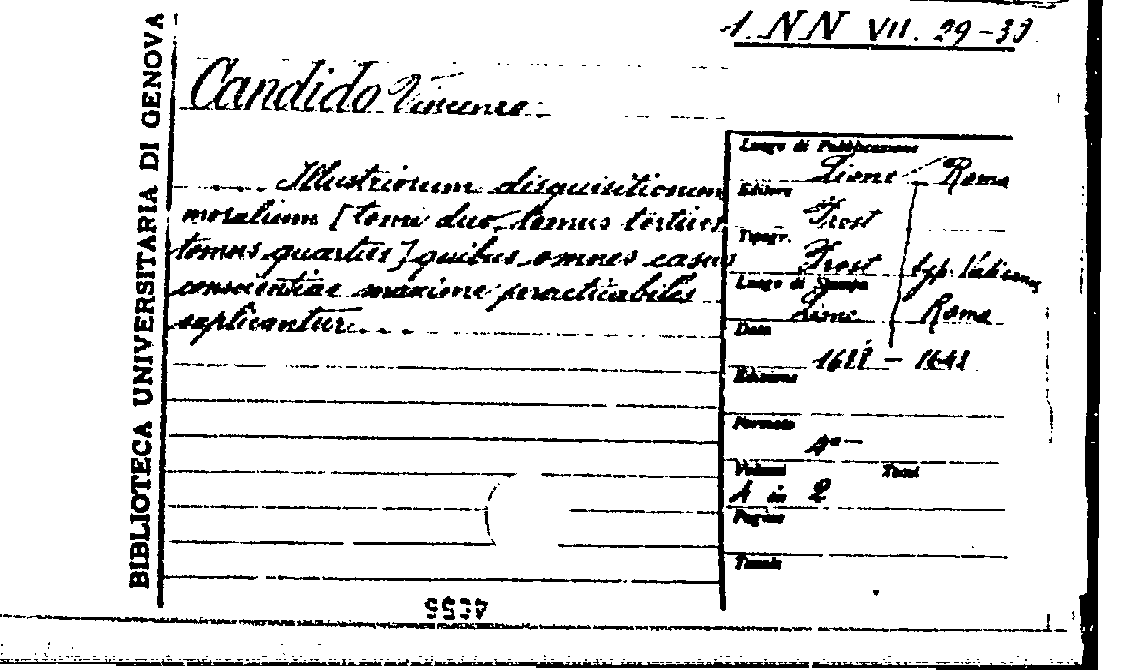 1. NN VII. 29-33
BIBLIOTECA UNIVERSITARIA DI GENOVA
Candido Vincenzo
Illustriorum disquisitionum
moralium [tomi duo, tomus tertius
tomus quartus] quibus omnes casus
conscientiae maxime practicabiles
explicantur...
Luogo di Pubblicazione
Lione - Roma
Editore
Prost
Tipogr.
Prost typ. Vaticana
Luogo di Stampa
Lione Roma
Data
- 1643
Edizione
Formato
4º
Volumi Tomi
4 in 2
Pagine
Tavole